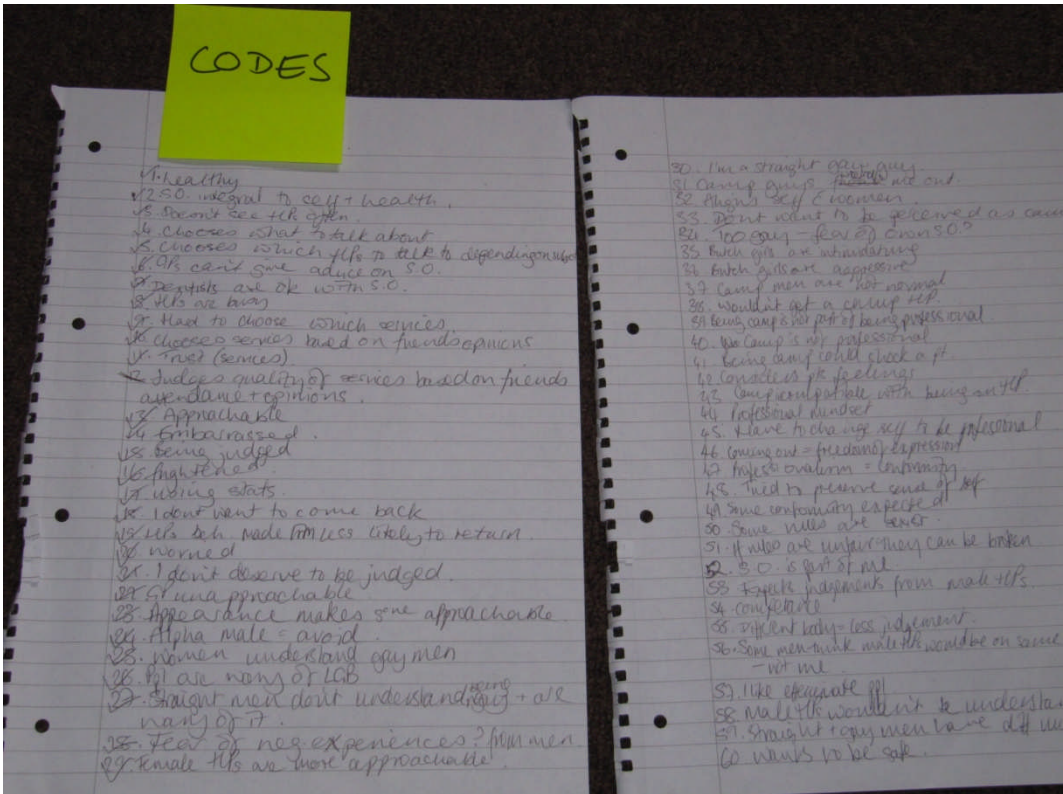 CODES
1. healthy
2. S.O. integral to self + health.
3. Doesn't see HPs often
4. Chooses what to talk about
5. Chooses which HPs to talk to depending on
6. GPs can't give advice on S.O.
7. Dentists are ok with S.O.
8. HPs are busy
9. Had to choose which services.
10. Chooses services based on friends opinions
11. Trust (services)
12. Judges quality of services based on friends
attendance + opinions.
13. Approachable
14. Embarrassed.
15. being judged
16. frightened
17. using stats.
18. I don't want to come back
19. HPs beh. made him less likely to return.
20. worried
21. I don't deserve to be judged.
22. unapproachable
23. Appearance makes s'one approachable
24. Alpha male = avoid.
25. women understand gay men
26. Ppl are wary of LGB
27. Straight men don't understand being gay + are
wary of it.
28. Fear of neg experiences? from men
29. Female HPs are more approachable
30. I'm a straight gay guy
31. Camp guys me out.
32. Aligns self c women.
33. Don't want to be perceived as
34. Too gay - fear of own S.O.?
35. Butch girls are intimidating
36. Butch girls are aggressive
37. Camp men are not normal
38. wouldn't get a camp HP.
39. Being camp is not part of being professional
40. Camp is not professional
41. Being camp could shock a pt.
42. Considers pts feelings
43. Camp with being an HP.
44. Professional mindset
45. Have to change self to be professional
46. Coming out = freedom of expression
47. Professionalism = conformity.
48. Tried to preserve sense of self
49. Some conformity expected
50. Some rules are
51. If rules are unfair they can be broken
52. S.O. is part of me.
53. Expects judgements from male HPs
54. competence
55. Different body = less judgement.
56. Some men think male HPs would be on same
- not me
57. I like effeminate ppl
58. Male HPs wouldn't
59. Straight + gay men have diff
60. wants to be safe.